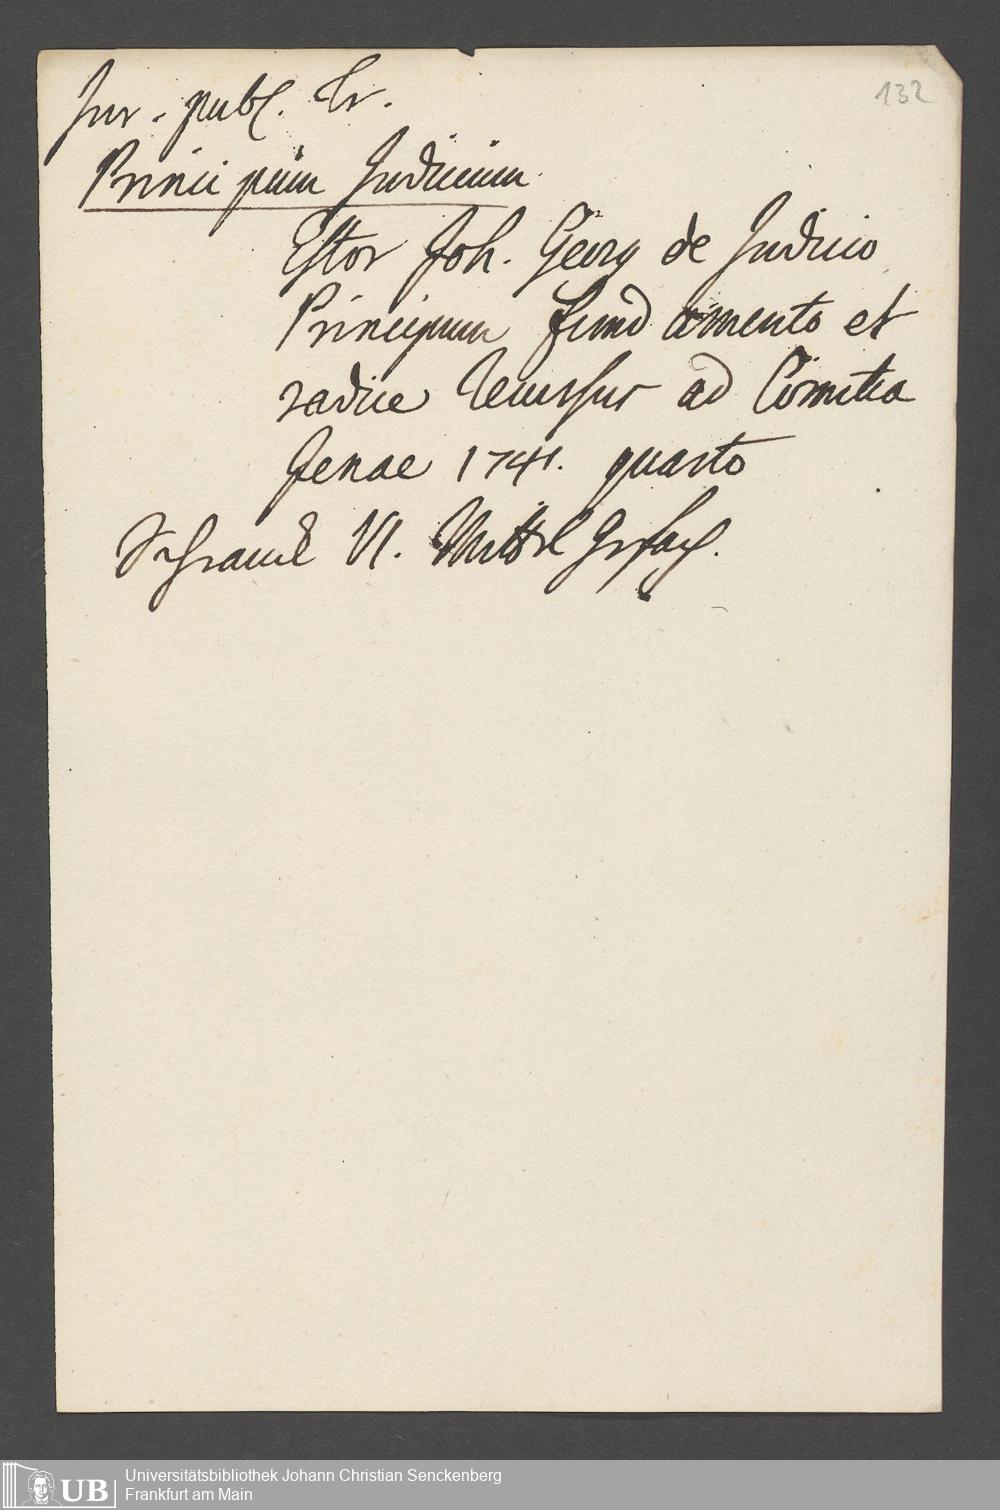 132
Jur. publ. Tr.
Principum Judicium
Estor Joh. Georg de Judicio
Principum fundamento et
radice recursus ad Comitia
Jenae 1741. quarto
Schrank VI.
Universitätsbibliothek Johann Christian Senckenberg
Frankfurt am Main
UB